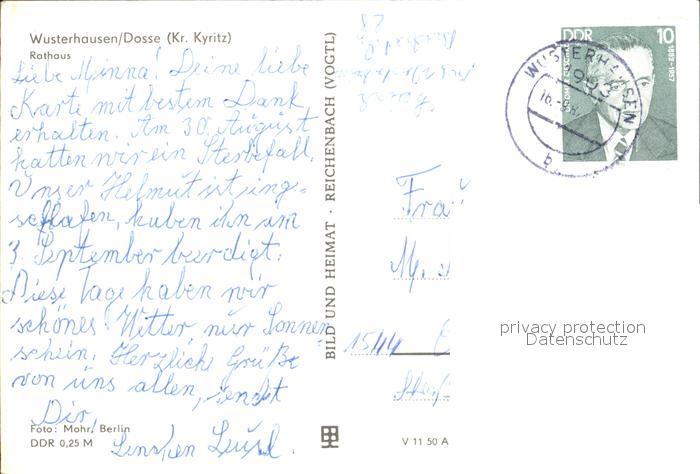 Wusterhausen/Dosse (Kr. Kyritz)
Rathaus
Liebe Minna! Deine liebe
Karte mit bestem Dank
erhalten. Am 30. August
hatten wir ein Sterbefall.
Unser Helmut ist ing-
schlafen, haben ihn am
3. September beerdigt.
Diese Tage haben wir
schönes Wetter, nur Sonnen
schein. Herzliche Grüße
von uns allen, sendet
Dir,
Foto: Mohr, Berlin
DDR 0,25 M
BILD UND HEIMAT · REICHENBACH (VOGTL)
V 11 50 A
DDR 10
WUSTERHAUSEN
Frau
M.
privacy protection
Datenschutz